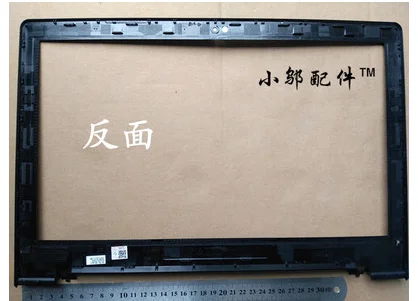 小邬配件™
反面
1 2 3 4 5 6 7 8 9 10 11 12 13 14 15 16 17 18 19 20 21 22 23 24 25 26 27 28 29 30